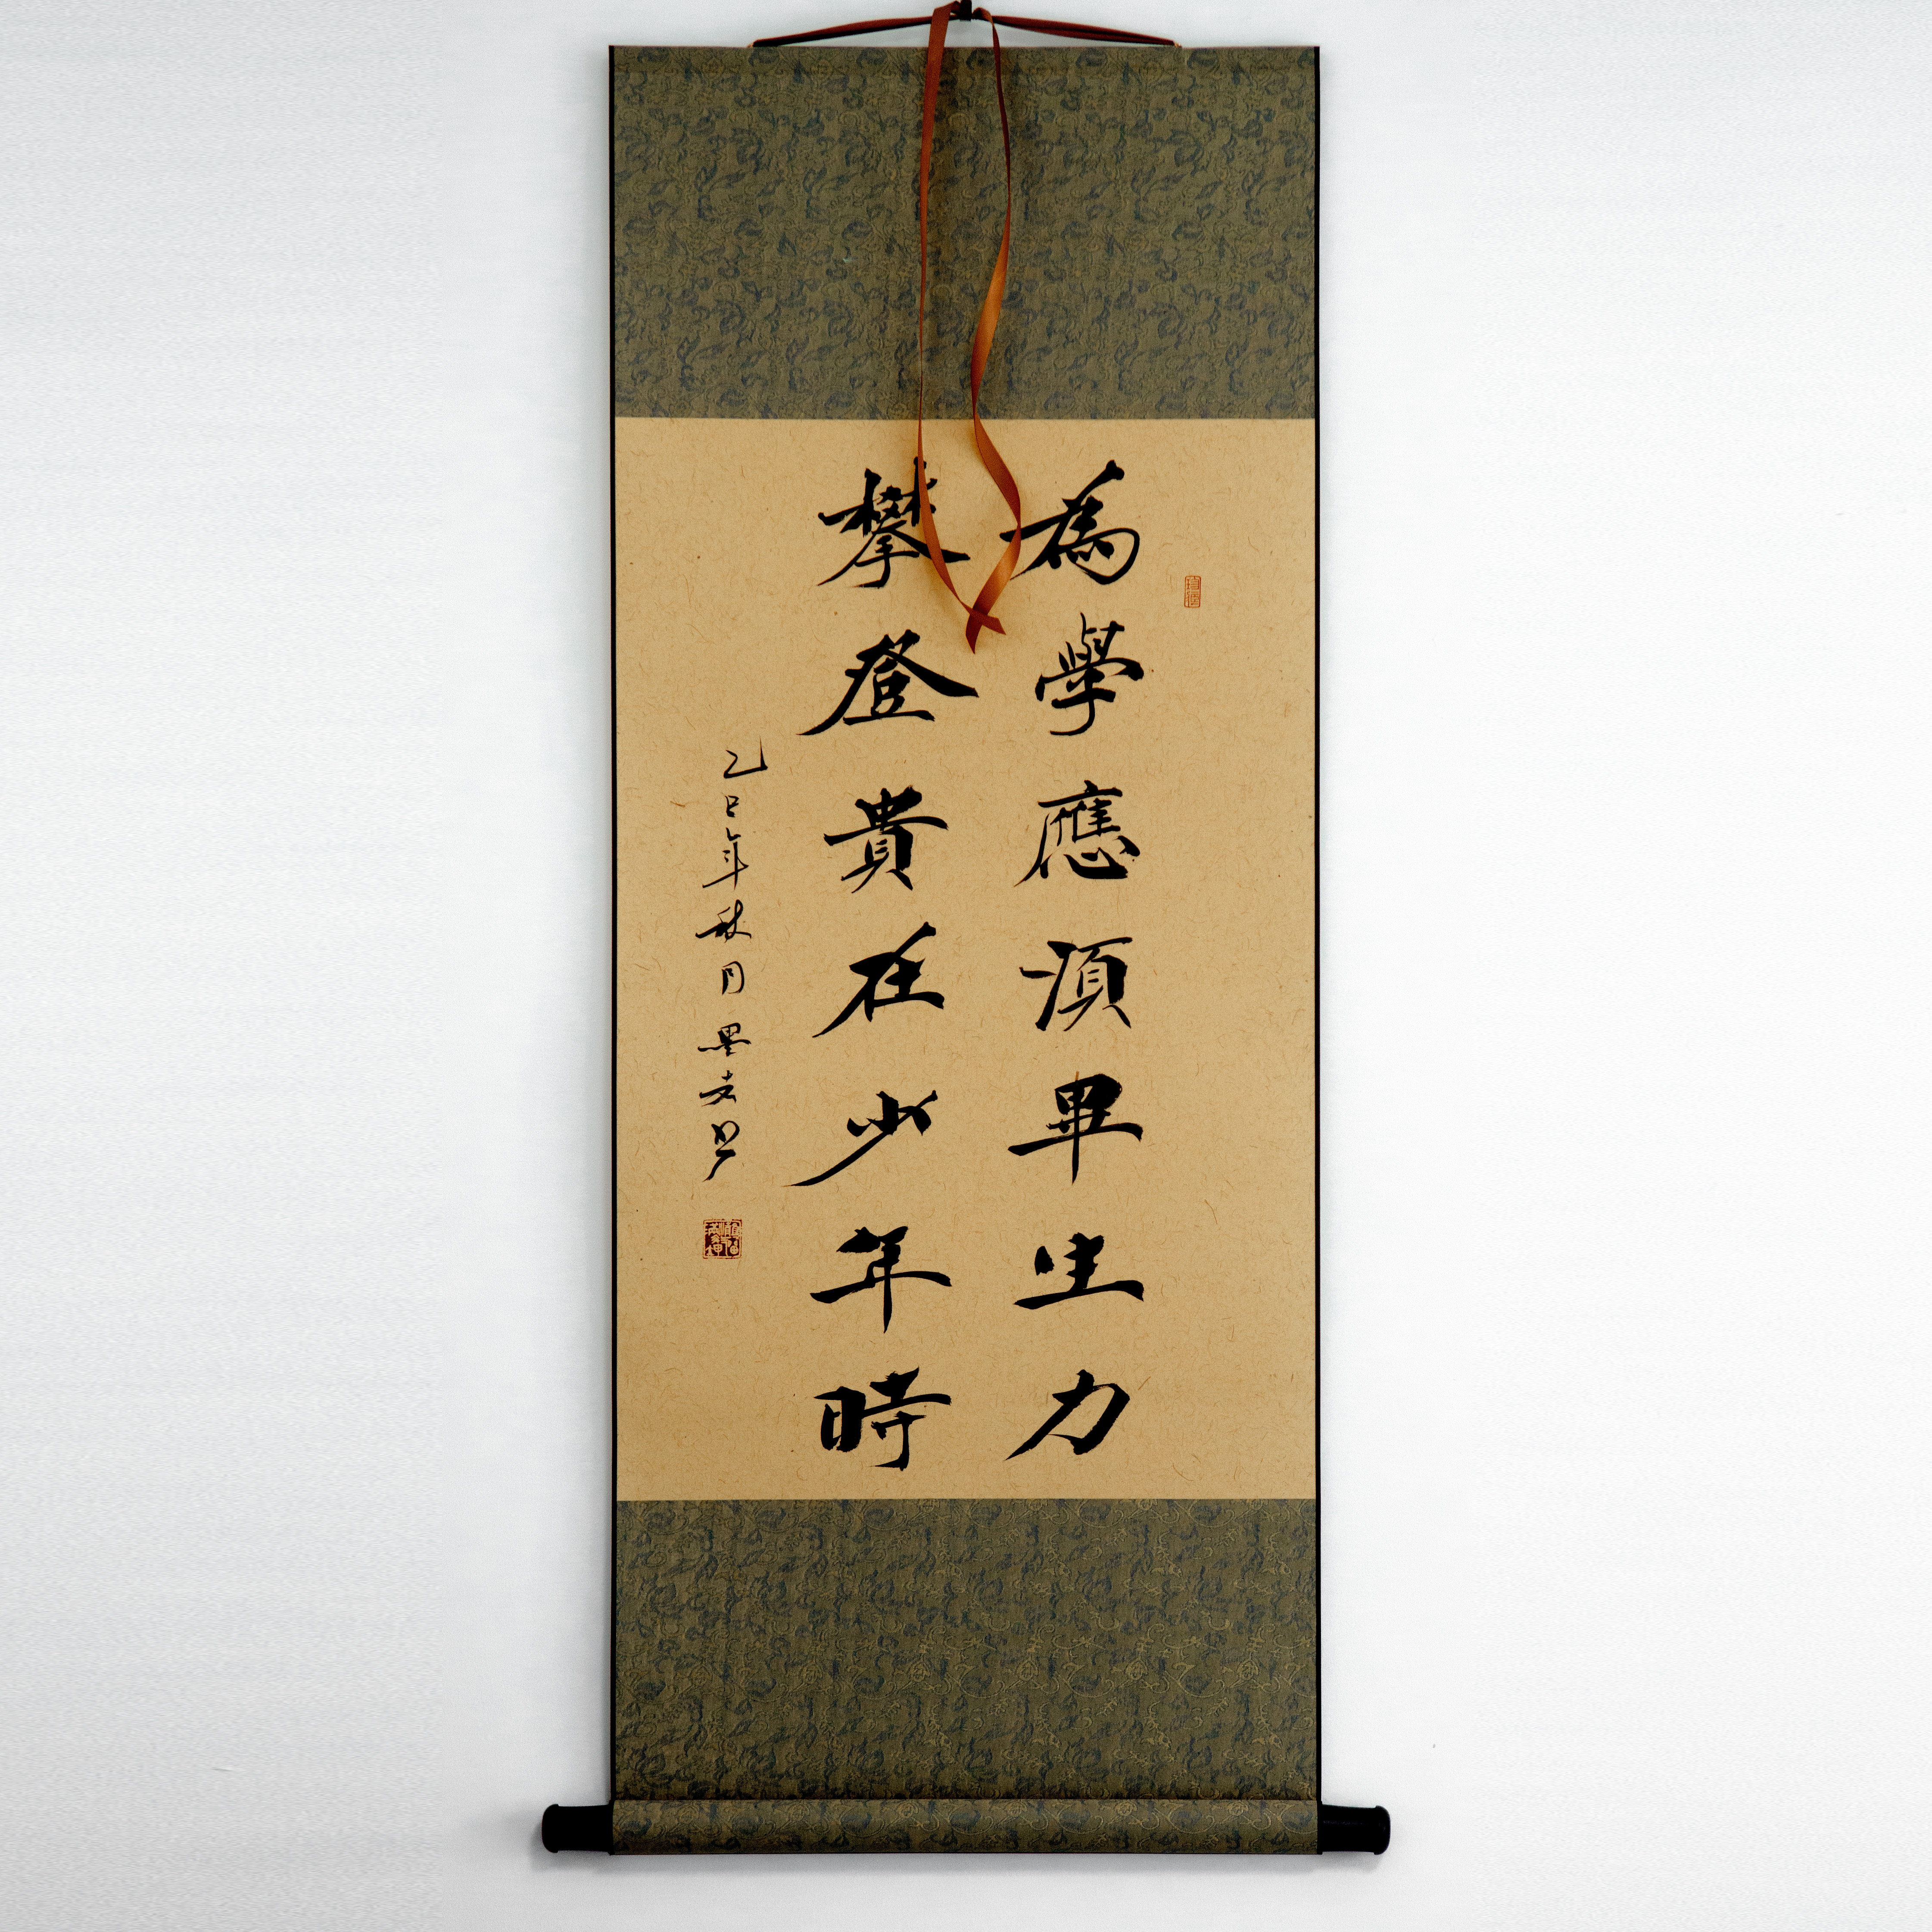 為學應須畢生力
攀登貴在少年時
乙巳年秋月墨书